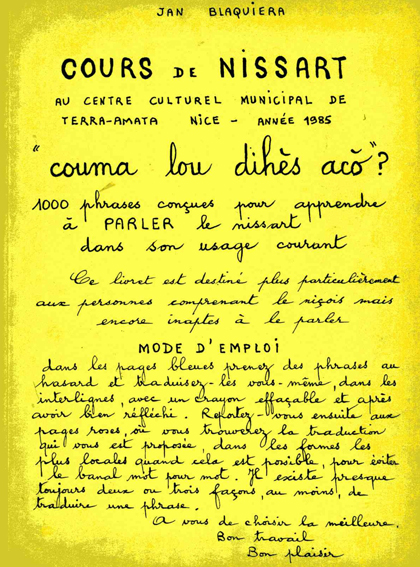 JAN BLAQUIERA
COURS DE NISSART
AU CENTRE CULTUREL MUNICIPAL DE
TERRA-AMATA NICE - ANNÉE 1985
"couma lou dihès acò"?
1000 phrases conçues pour apprendre
à PARLER le nissart
dans son usage courant
Ce livret est destiné plus particulièrement
aux personnes comprenant le niçois mais
encore inaptes à le parler
MODE D'EMPLOI
dans les pages bleues prenez des phrases au
hasard et traduisez-les vous-même, dans les
interlignes, avec un crayon effaçable et après
avoir bien réfléchi. Reportez-vous ensuite aux
pages roses, où vous trouverez la traduction
qui vous est proposée, dans les formes les
plus locales quand cela est possible, pour éviter
le banal mot pour mot. Il existe presque
toujours deux ou trois façons, au moins, de
traduire une phrase.
A vous de choisir la meilleure.
Bon travail
Bon plaisir